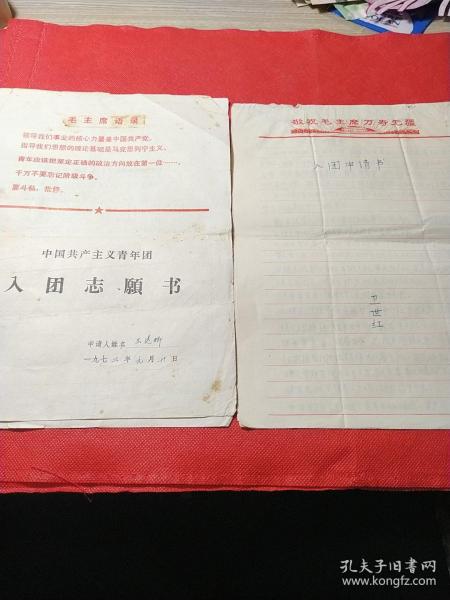 毛主席语录
领导我们事业的核心力量是中国共产党。
指导我们思想的理论基础是马克思列宁主义。
青年应该把坚定正确的政治方向放在第一位……。
千万不要忘记阶级斗争。
要斗私,批修。
中国共产主义青年团
入团志願书
申请人姓名
一九七
年元月
日
敬祝毛主席万寿无疆
入团申请书
卫世红
孔夫子旧书网
www.kongfz.com